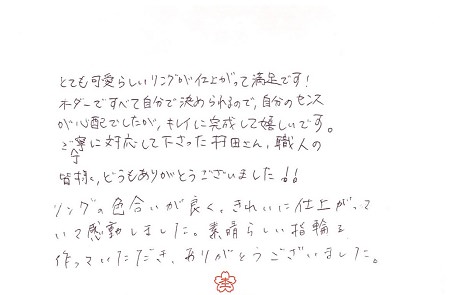 とても可愛らしいリングが仕上がって満足です！
オーダーですべて自分で決められるので、自分のセンス
が心配でしたが、キレイに完成して嬉しいです。
ご丁寧に対応して下さった村田さん、職人の
皆様、どうもありがとうございました!!
リングの色合いが良く、きれいに仕上がって
いて感動しました。素晴らしい指輪を
作っていただき、ありがとうございました。